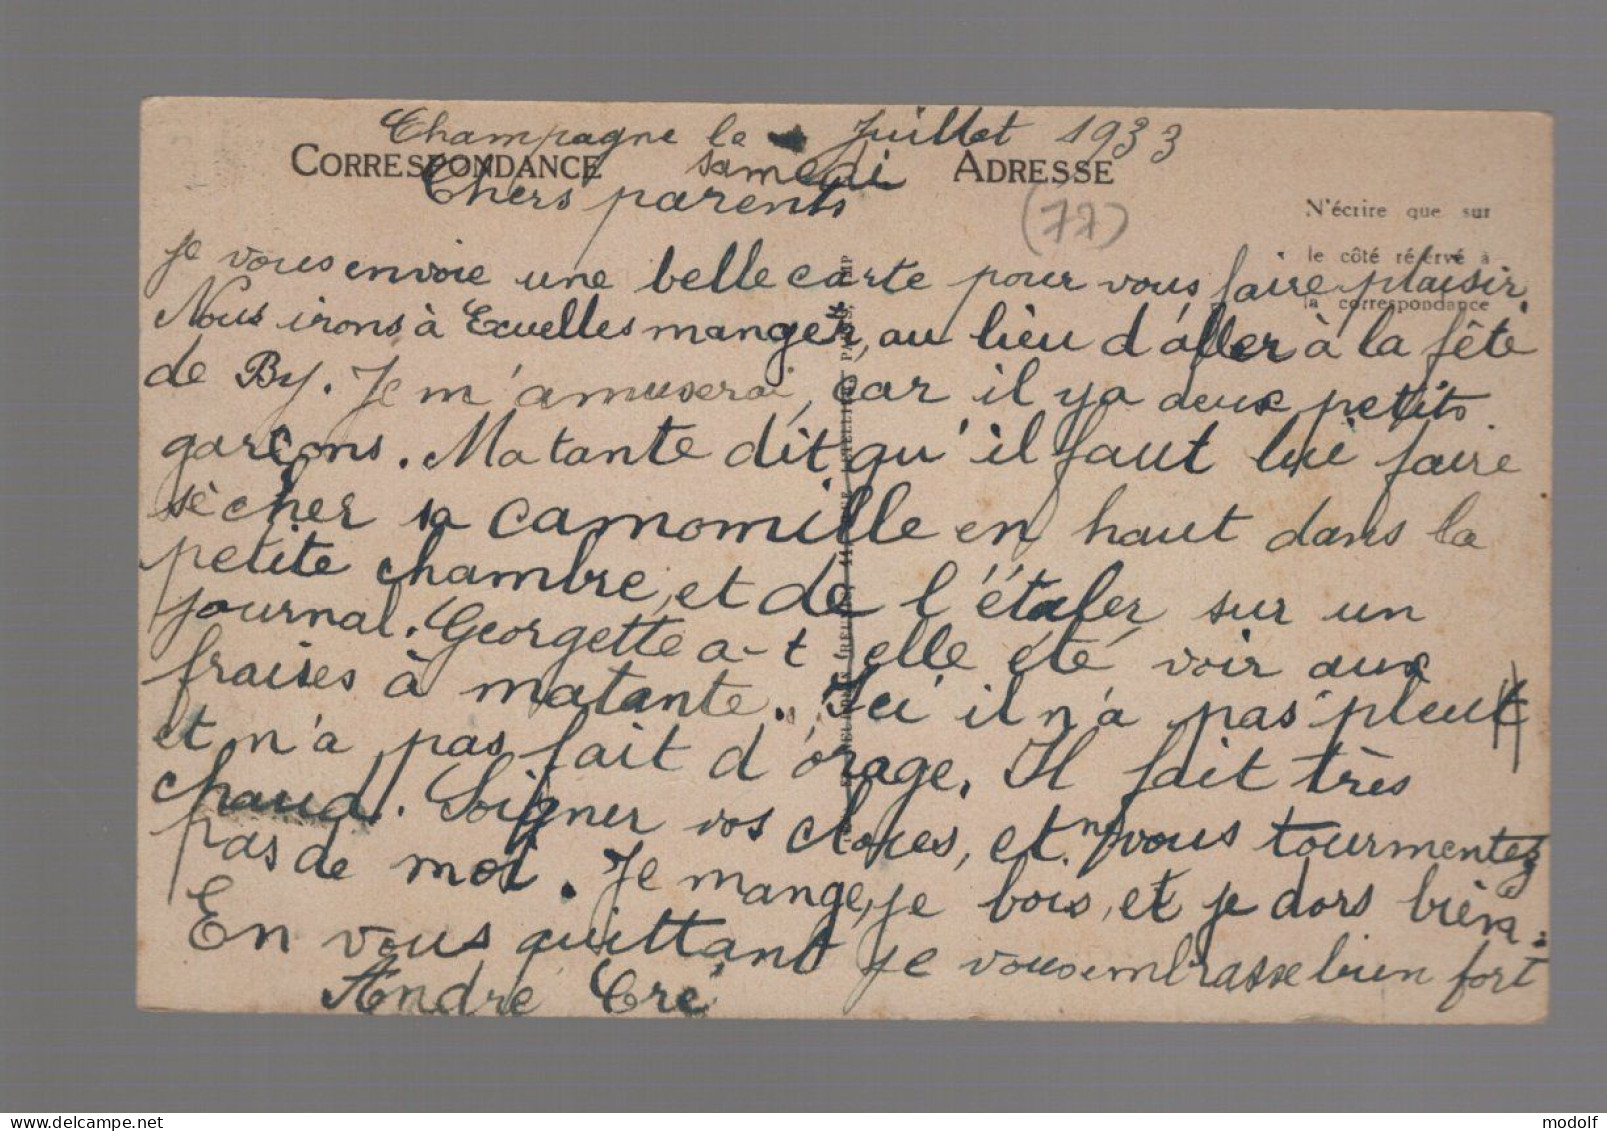 Champagne le Juillet 1933
CORRESPONDANCE samedi ADRESSE
Chers parents
(77)
N'écrire que sur
le côté réservé à
la correspondance
je vous envoie une belle carte pour vous faire plaisir.
Nous irons à Ecuelles manger, au lieu d'aller à la fête
de By. Je m'amuserai, car il y a deux petits
garçons. Ma tante dit qu'il faut lui faire
sècher sa camomille en haut dans la
petite chambre, et de l'étaler sur un
journal. Georgette a-t elle été voir aux
fraises à matante. Ici il n'a pas pleut
et n'a pas fait d'orage. Il fait très
chaud. Soigner vos cloues, et n vous tourmentez
pas de moi. Je mange, je bois, et je dors bien.
En vous quittant je vous embrasse bien fort
André Cré
modolf
www.delcampe.net